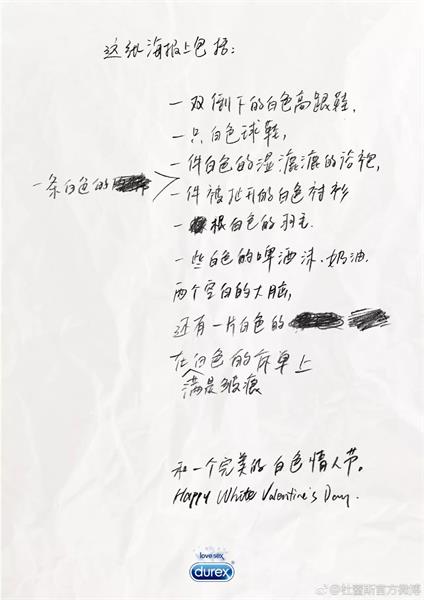 这张海报上包括:
一双倒下的白色高跟鞋,
一只白色球鞋,
一件白色的湿漉漉的浴袍,
一条白色的
一件被扯开的白色衬衫
一根白色的羽毛
一些白色的啤酒沫、奶油.
两个空白的大脑,
还有一片白色的
在白色的床单上
满是褶痕
和一个完美的白色情人节。
Happy White Valentine's Day.
love sex
durex
杜蕾斯官方微博